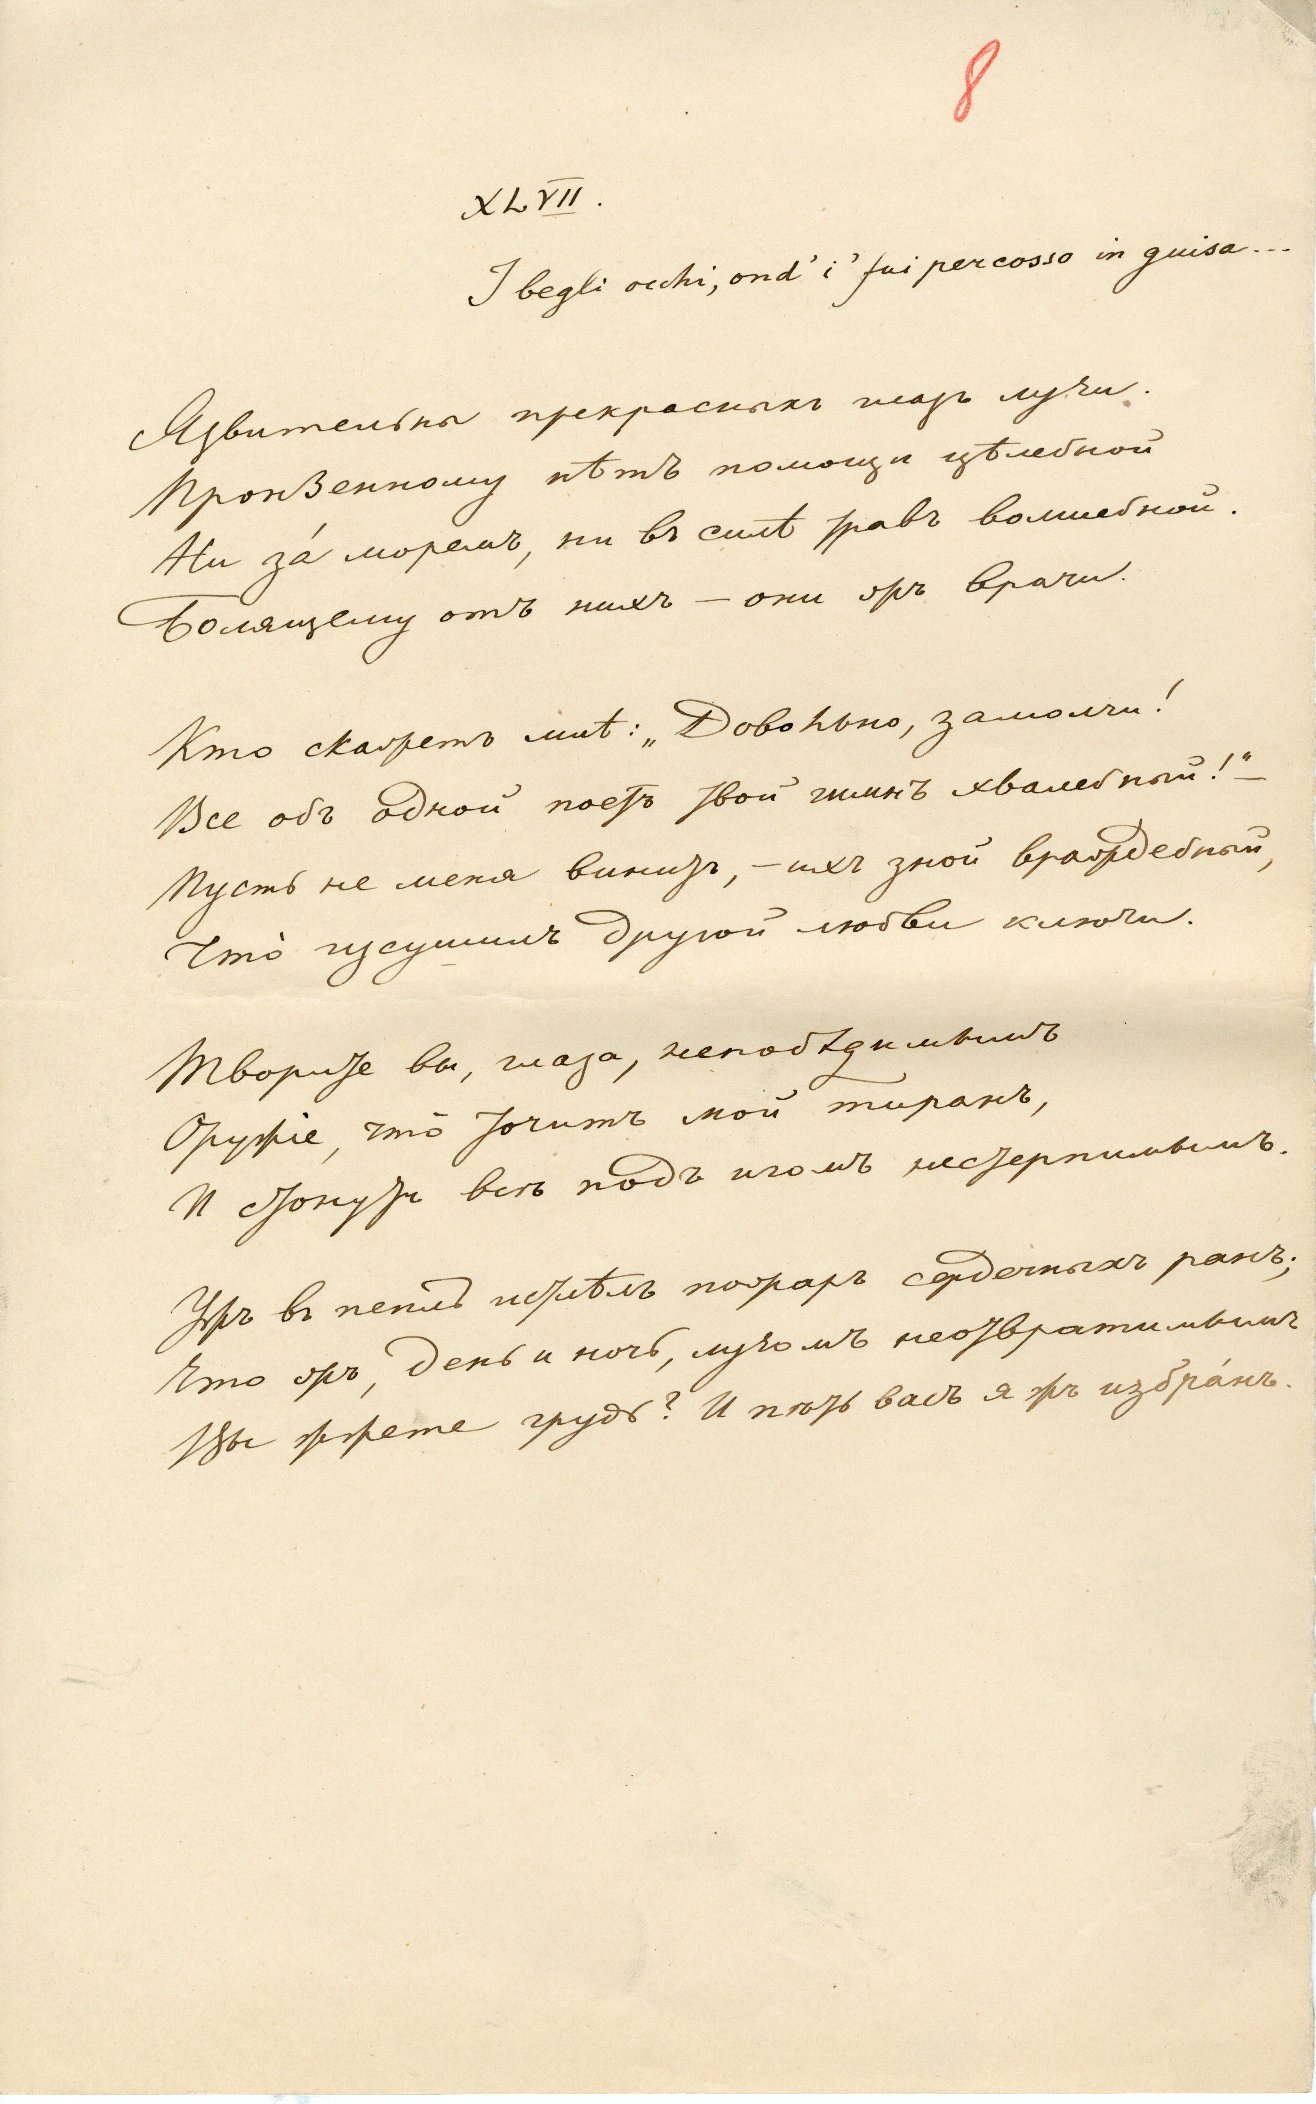 8
XLVII.
I begli occhi, ond' i' fui percosso in guisa...
Язвительны прекрасныхъ глазъ лучи.
Пронзенному нѣтъ помощи цѣлебной
Ни зá моремъ, ни въ силѣ травъ волшебной.
Болящему отъ нихъ – они жъ врачи.
Кто скажетъ мнѣ: „Довольно, замолчи!
Все объ одной поетъ твой гимнъ хвалебный!“ –
Пусть не меня винитъ, – ихъ зной враждебный,
Чтò изсушилъ другой любви ключи.
Творите вы, глаза, непобѣдимымъ
Оружіе, чтò точитъ мой тиранъ,
И стонутъ всѣ подъ игомъ нестерпимымъ.
Ужъ въ пепелъ истлѣлъ пожаръ сердечныхъ ранъ;
Что жъ, день и ночь, лучомъ неотвратимымъ
Вы жжете грудь? И пѣть васъ я жъ избрáнъ.